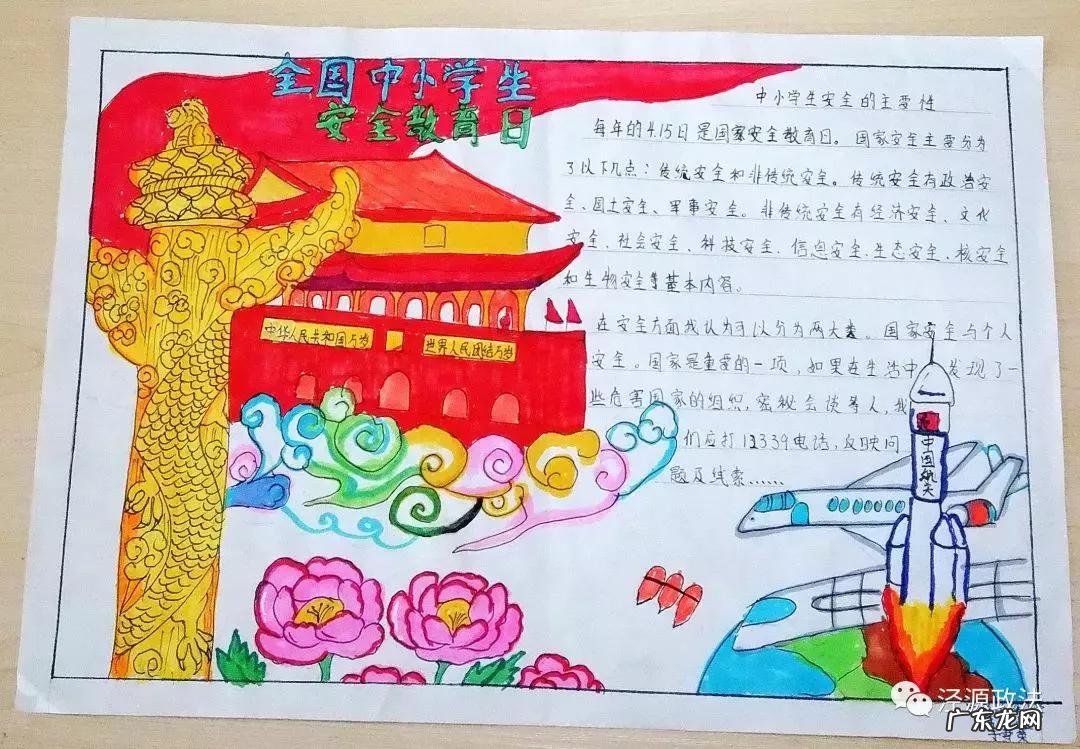 全国中小学生
安全教育日
中小学生安全的主要性
每年的4.15日是国家安全教育日。国家安全主要分为
了以下几点：传统安全和非传统安全。传统安全有政治安
全、国土安全、军事安全。非传统安全有经济安全、文化
安全、社会安全、科技安全、信息安全、生态安全、核安全
和生物安全等基本内容。
在安全方面我认为可以分为两大类。国家安全与个人
安全。国家是重要的一项，如果在生活中发现了一
些危害国家的组织，密秘会谈等人，我
们应打12339电话，反映问
题及线索……
中华人民共和国万岁
世界人民团结万岁
中国航天
泾源政法
广东龙网